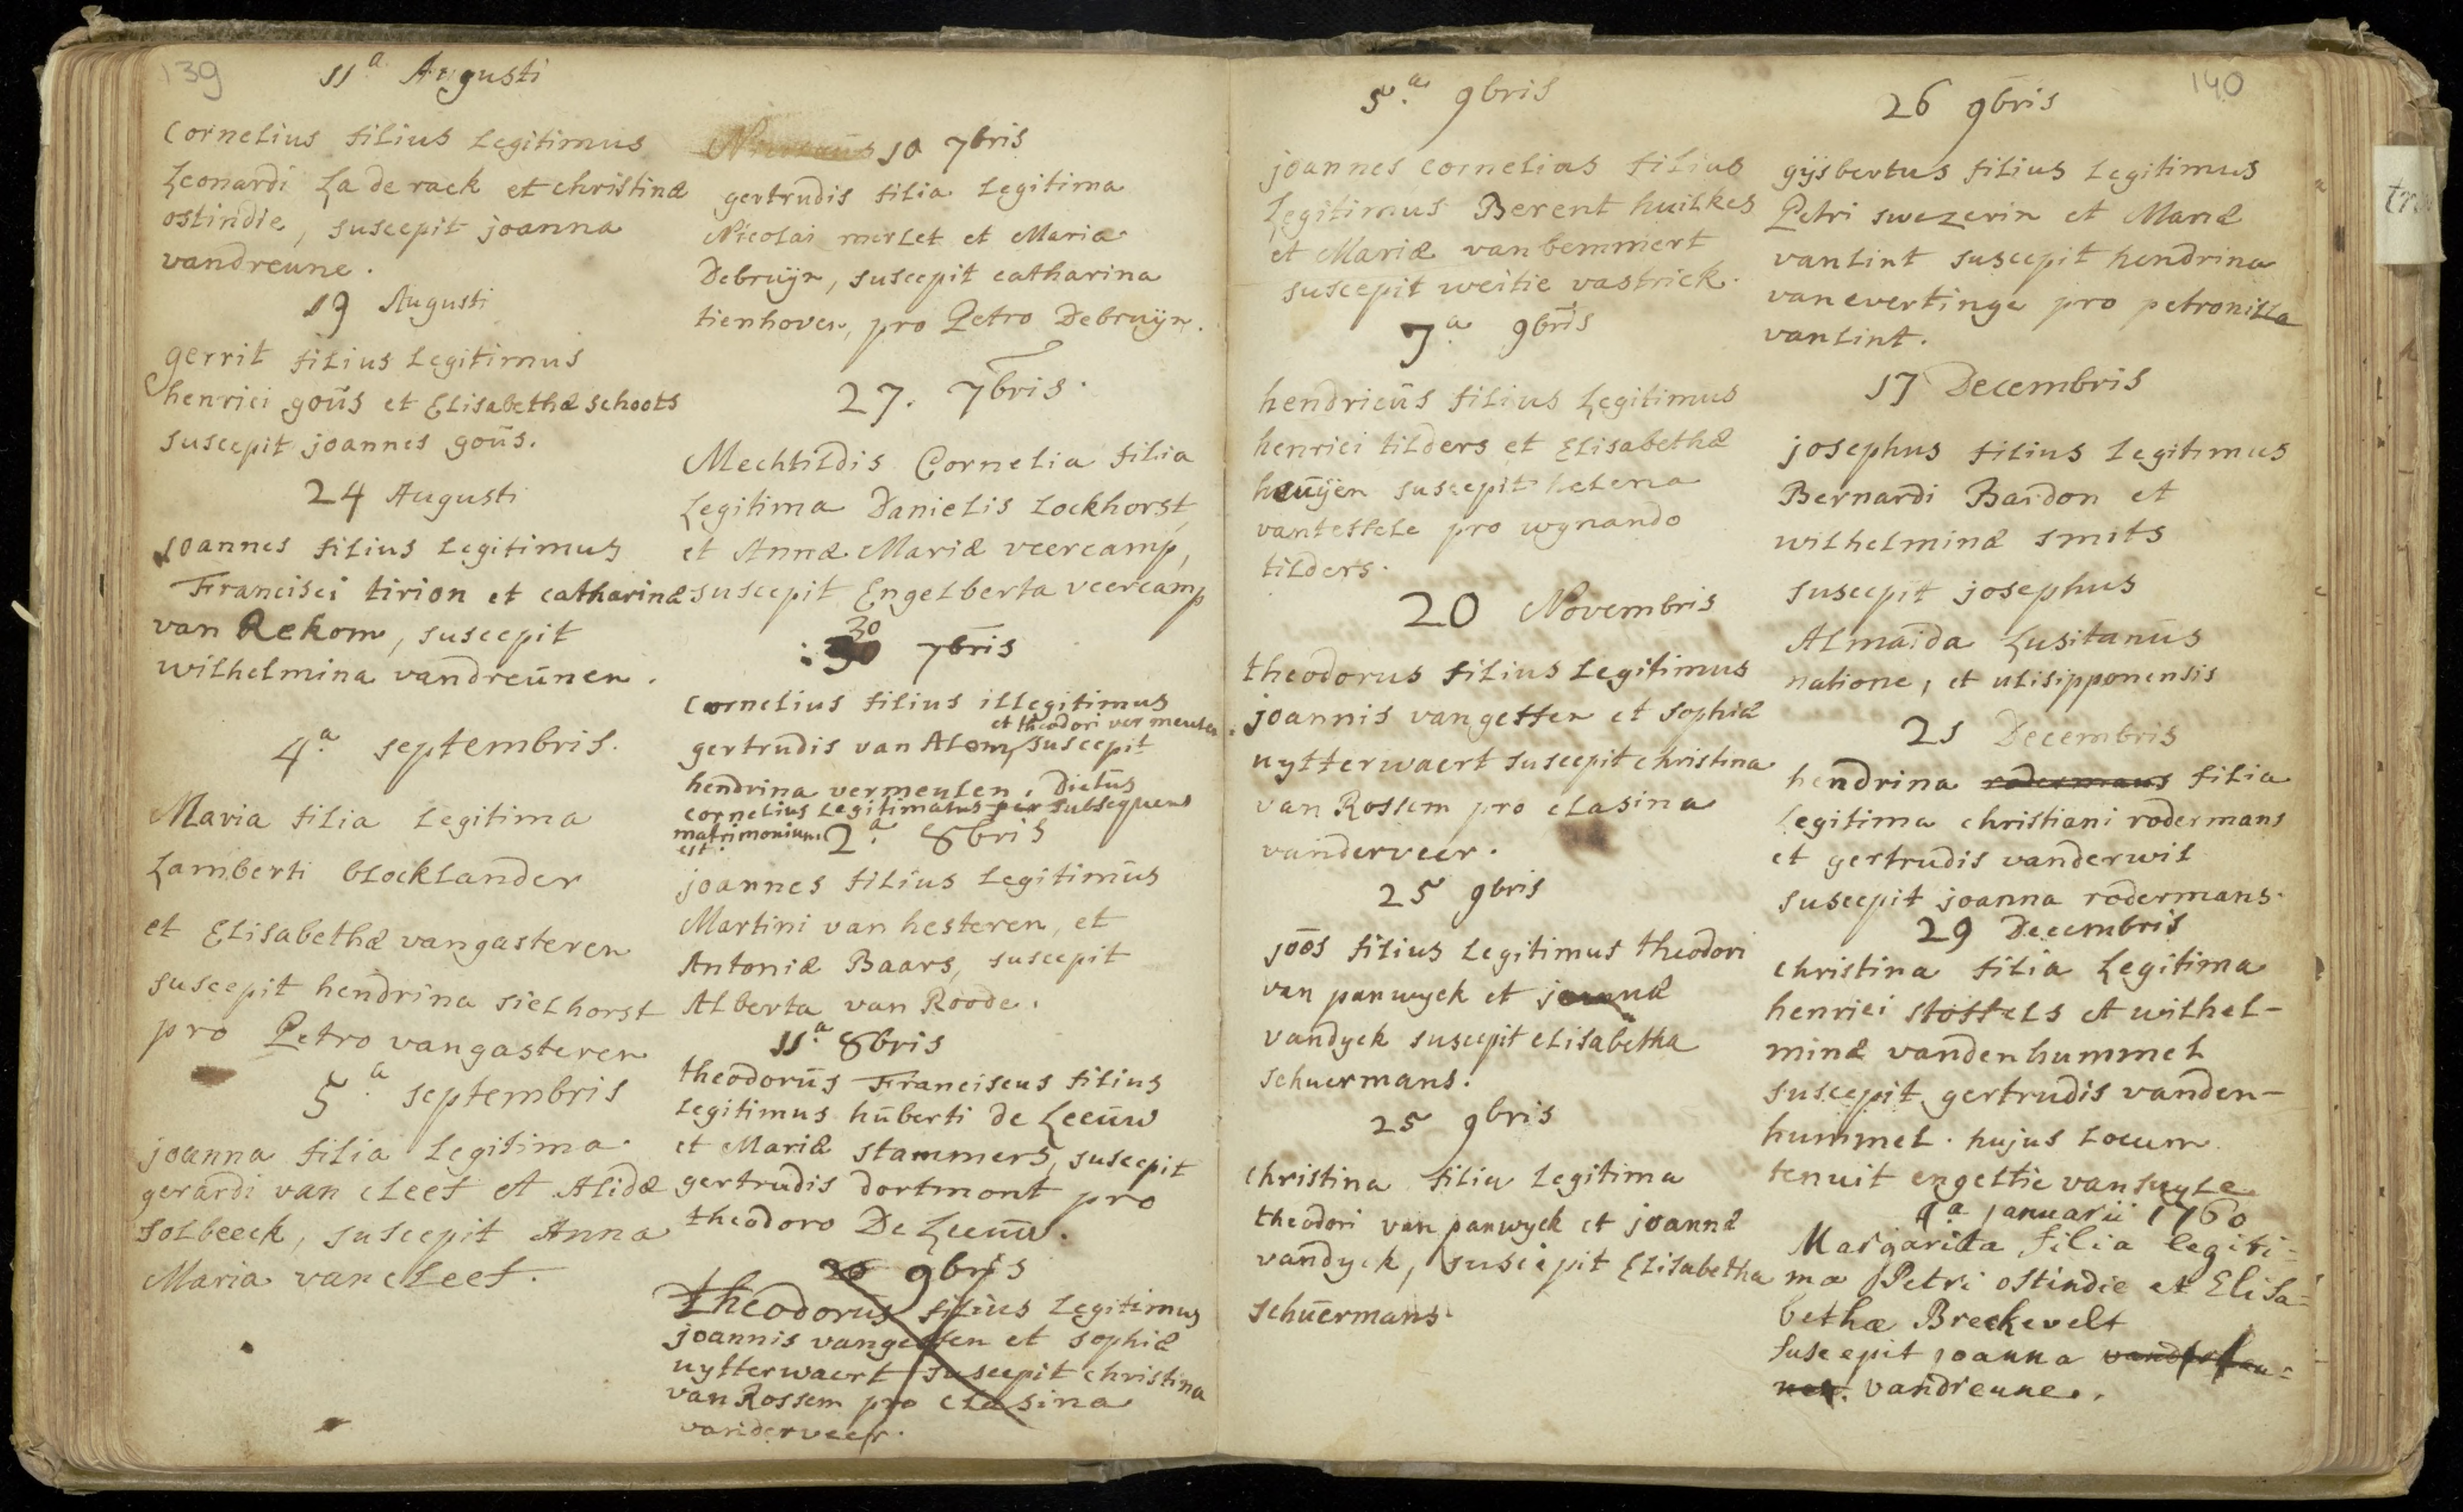 139
11a Augusti
Cornelius filius legitimus
Leonardi La de rack et christinæ
ostindie, suscepit joanna
vandreune.
19 Augusti
gerrit filius legitimus
henrici goũs et Elisabethæ schoots
suscepit joannes goũs.
24 Augusti
joannes filius legitimus
Francisci tirion et catharinæ
van Rekom, suscepit
wilhelmina vandreũnen.
4a septembris.
Maria filia legitima
Lamberti blocklander
et Elisabethæ vangasteren
suscepit hendrina sielhorst
pro Petro vangasteren
5a septembris
joanna filia legitima
gerardi van cleef et Alidæ
solbeeck, suscepit Anna
Maria van cleef.
10 7bris
gertrudis filia legitima
Nicolai merlet et Maria
Debruÿn, suscepit catharina
tienhoven, pro Petro Debruÿn.
27. 7bris.
Mechtildis Cornelia filia
legitima Danielis Lockhorst,
et Annæ Mariæ veercamp,
suscepit Engelberta veercamp
30
7bris
Cornelius filius illegitimus
et theodori vermeulen
gertrudis van Alom, suscepit
hendrina vermeulen. Dictũs
cornelius legitimatus per subsequens
matrimonium
est.
2a 8bris
joannes filius legitimũs
Martini van hesteren, et
Antoniæ Baars, suscepit
Alberta van Roode.
11a 8bris
theodorũs Franciscus filius
legitimus hũberti de Leeũw
et Mariæ stammers, suscepit
gertrudis dortmont pro
theodoro De Leeũw.
20 9bris
Theodorũs filius legitimus
joannis vangessen et sophiæ
uytterwaert suscepit christina
van Rossem pro clasina
vanderveer.
5a 9bris
joannes cornelius filius
legitimus Berent huilkes
et Mariæ van bemmert
suscepit weitie vastrick.
7a 9bris
hendricũs filius legitimus
henrici tilders et Elisabethæ
heuÿen suscepit helena
vantessele pro wynando
tilders.
20 Novembris
theodorus filius legitimus
joannis vangessen et sophiæ
uytterwaert suscepit christina
van Rossem pro clasina
vanderveer.
25 9bris
joõs filius legitimus theodori
van panwyck et joannæ
vandyck suscepit elisabetha
schuermans.
25 9bris
christina filia legitima
theodori van panwyck et joannæ
vandyck, suscepit Elisabetha
schũermans.
140
26 9bris
gijsbertus filius legitimus
Petri swezerin et Mariæ
vanlint suscepit hendrina
van evertinge pro petronilla
vanlint.
17 Decembris
josephus filius legitimus
Bernardi Bardon et
wilhelminæ smits
suscepit josephus
Almaida Lusitanũs
natione, et ulisipponensis
21 Decembris
hendrina rodermans filia
legitima christiani rodermans
et gertrudis vanderwil
suscepit joanna rodermans.
29 Decembris
christina filia legitima
henrici stoffels et wilhel-
minæ vandenhummel
suscepit gertrudis vanden-
hummel. hujus locum
tenuit engeltie van suyle
1a januarii 1760
Margarita filia legiti=
ma Petri ostindie et Elisa=
bethæ Breekevelt
suscepit joanna
vandreune.